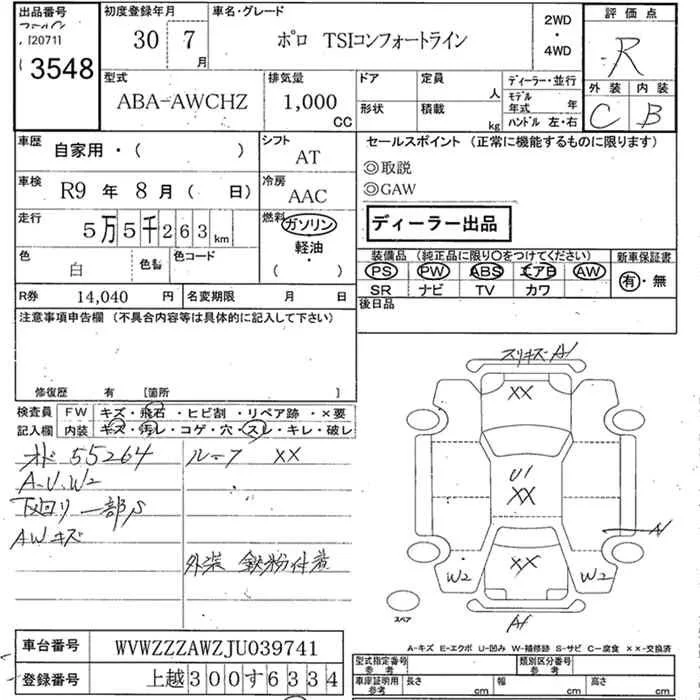 出品番号
120711
3548
初度登録年月
30 7月
車名・グレード
ポロ TSIコンフォートライン
2WD
・
4WD
評価点
R
外装 内装
C B
型式
ABA-AWCHZ
排気量
1,000
CC
ドア
定員
人
ディーラー・並行
形状
積載
kg
モデル年式 年
ハンドル 左・右
車歴
自家用・( )
シフト
AT
車検
R9 年 8 月 ( 日)
冷房
AAC
走行
5万5千263 km
燃料
ガソリン
軽油
・
( )
色
白
色No
色コード
R券
14,040 円
名変期限 月 日
セールスポイント (正常に機能するものに限ります)
◎取説
◎GAW
ディーラー出品
装備品 (純正品に限り○をつけてください)
PS PW ABS エアB AW
SR ナビ TV カワ
新車保証書
有・無
後日品
注意事項申告欄 (不具合内容等は具体的に記入して下さい)
修復歴 有 [箇所 ]
検査員記入欄
FW キズ・飛石・ヒビ割・リペア跡・×要
内装 キズ・汚レ・コゲ・穴・スレ・キレ・破レ
オド 55264
A・U・W2
下回り一部S
AWキズ
ルーフ XX
外装 鉄粉付着
スリキズ・A1
XX
U1
XX
A1
XX
W2
W2
A1
スペア
A-キズ E-エクボ U-凹み W-補修跡 S-サビ C-腐食 ××-交換済
車台番号
WVWZZZAWZJU039741
登録番号
上越300す6334
型式指定番号
参考
類別区分番号
参考
車庫証明用
参考
長さ cm
幅 cm
高さ cm